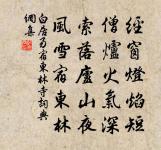 經窗燈焰短
僧爐火氣深
索落廬山夜
風雪宿東林
白居易宿東林寺詞典
網集